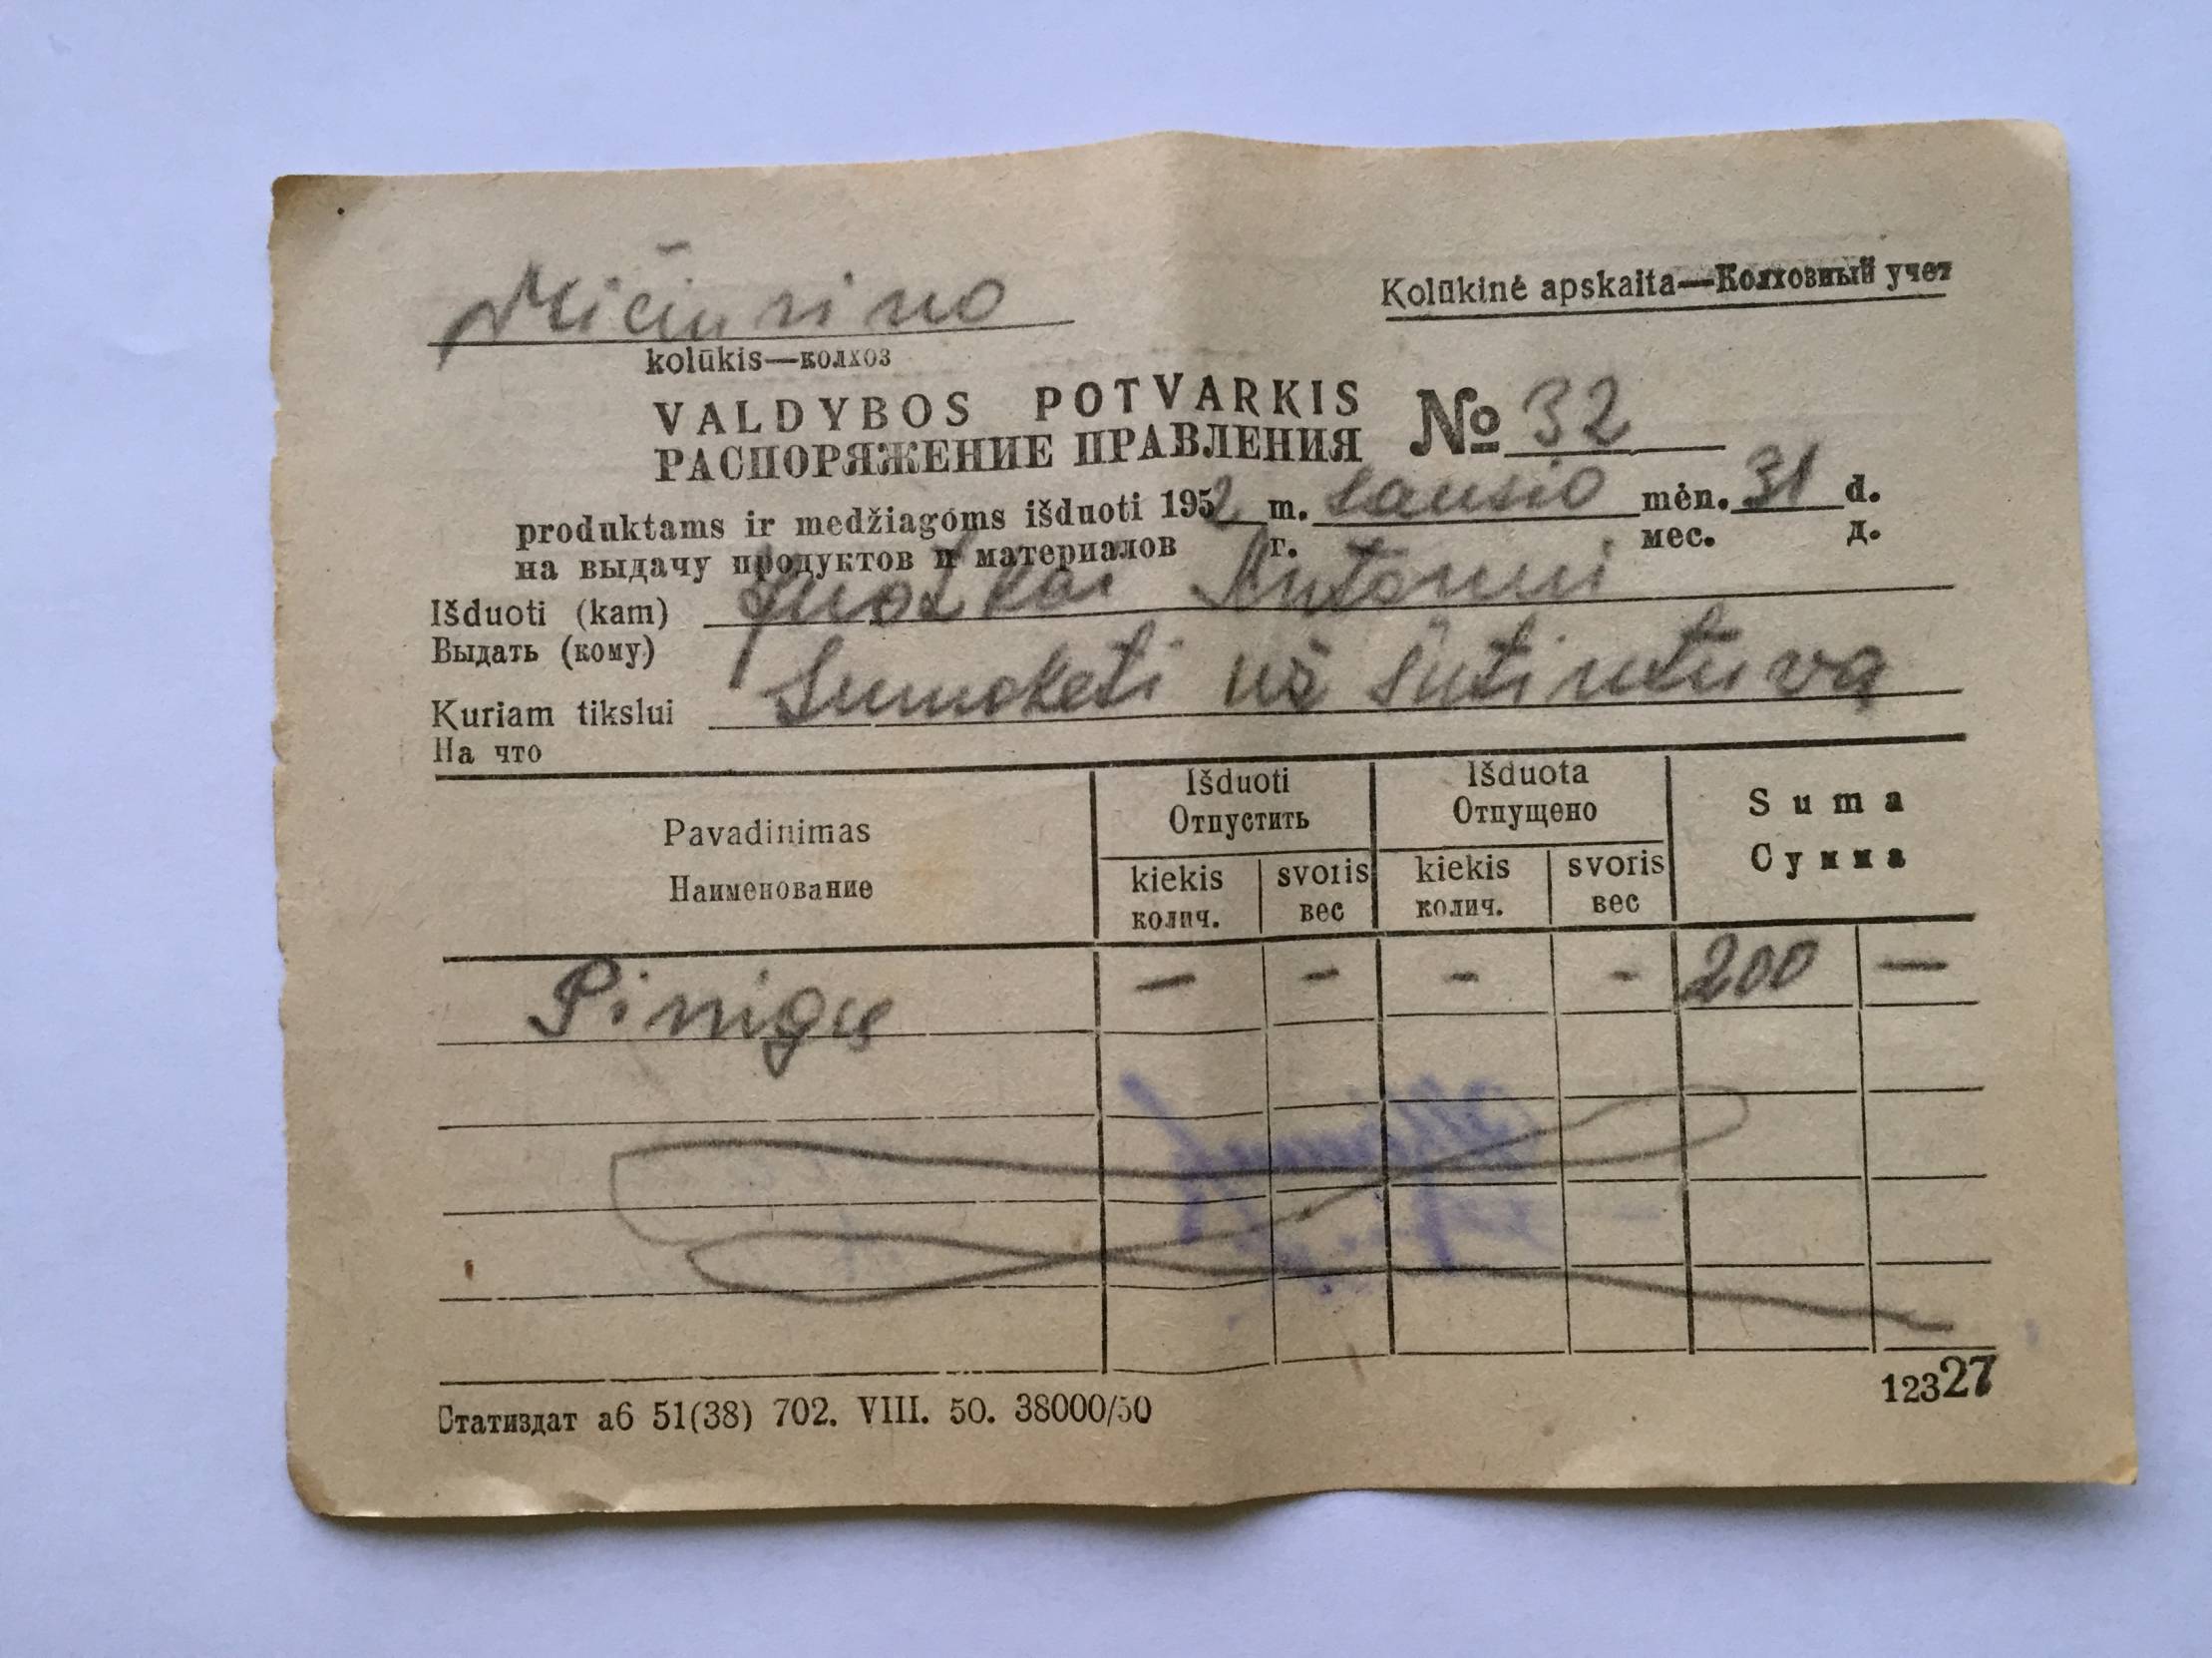 Mičiurino
Kolūkinė apskaita—Колхозный учет
kolūkis—колхоз
VALDYBOS POTVARKIS
РАСПОРЯЖЕНИЕ ПРАВЛЕНИЯ № 32
produktams ir medžiagoms išduoti 1952 m. sausio mėn. 31 d.
на выдачу продуктов и материалов г. мес. д.
Išduoti (kam) Juozkai Antanui
Выдать (кому)
Kuriam tikslui Sumokėti už šutintuvą
На что
Pavadinimas Išduoti Išduota Suma
Наименование Отпустить Отпущено Сумма
kiekis svoris kiekis svoris
колич. вес колич. вес
Pinigų — - - - 200 —
Статиздат аб 51(38) 702. VIII. 50. 38000/50 12327